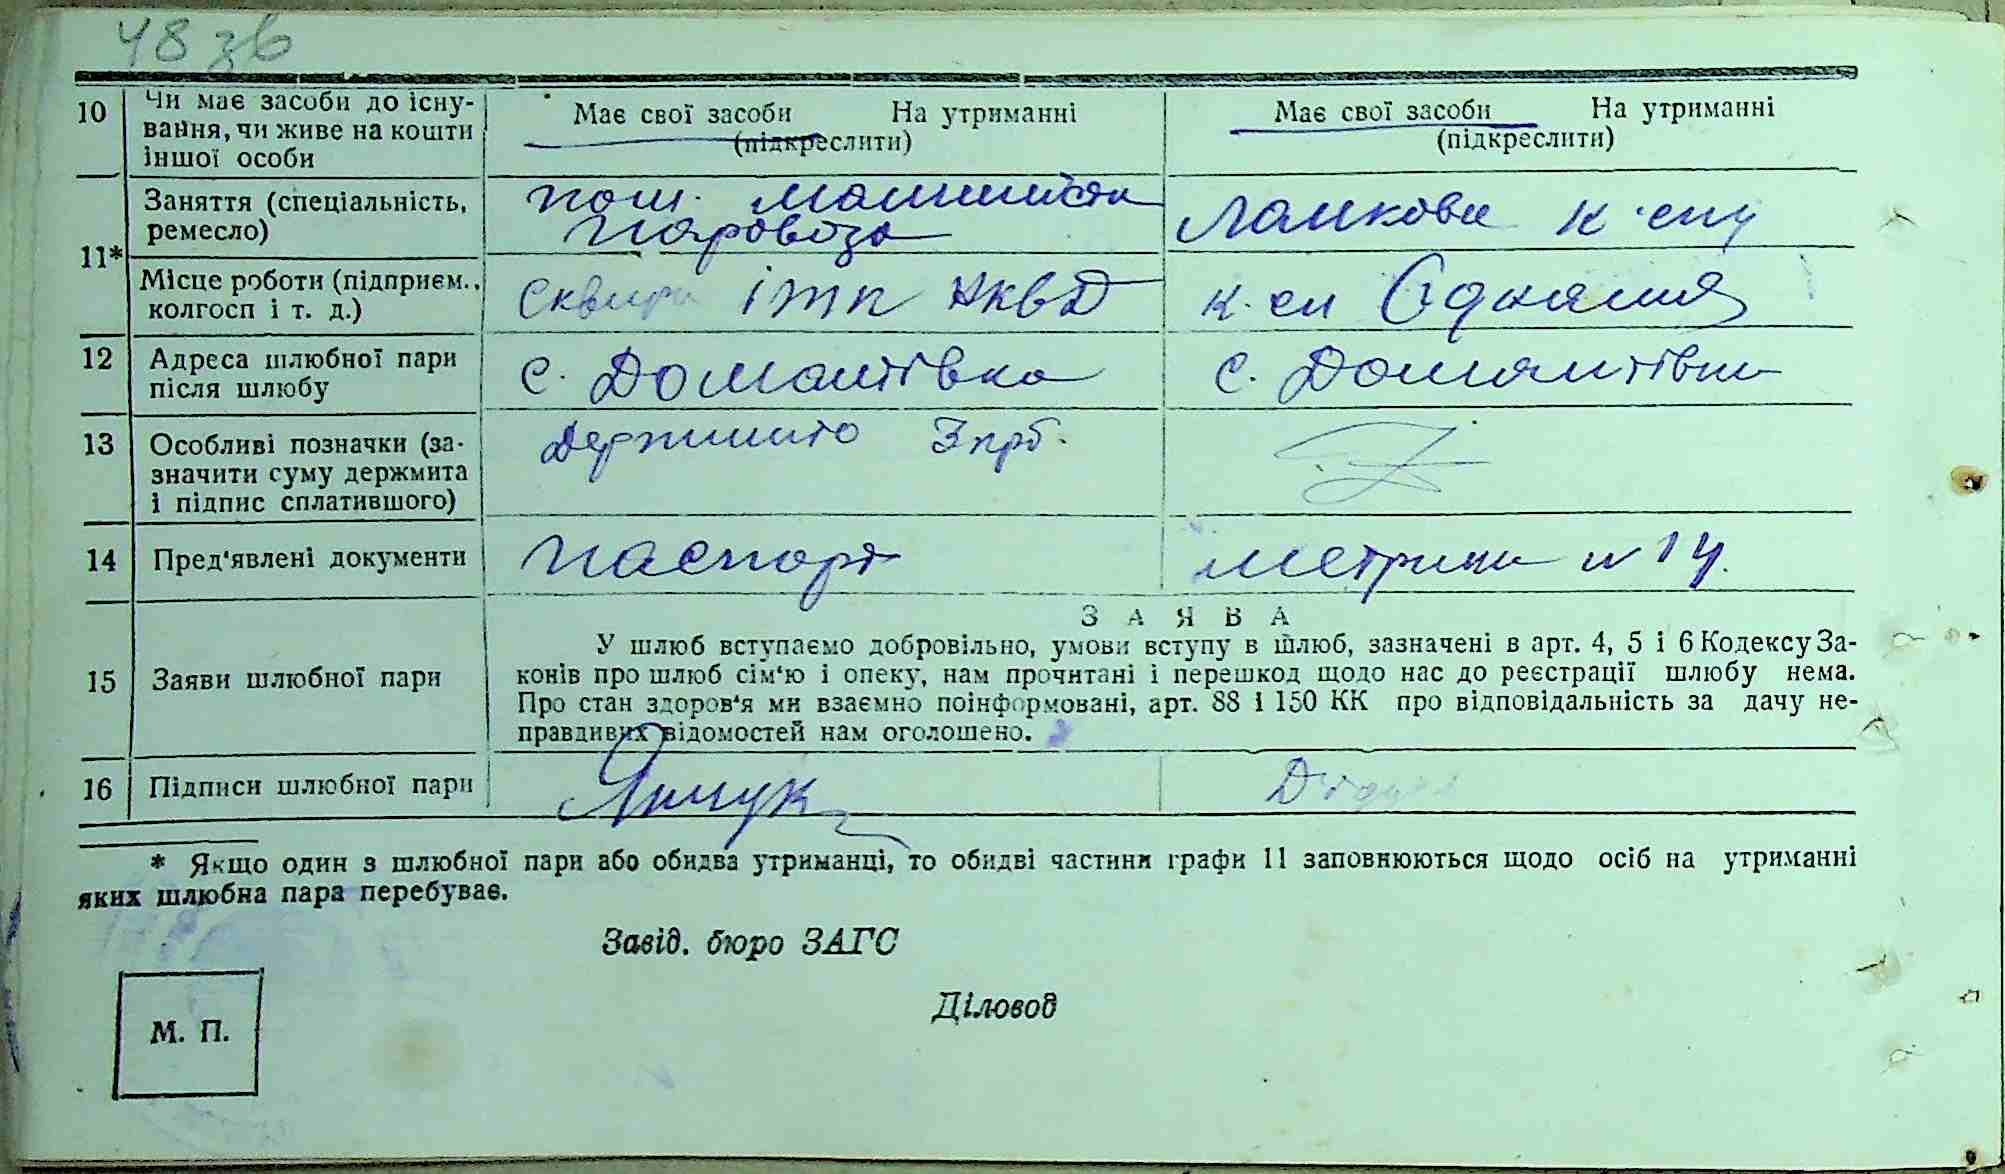 48 зв
10 Чи має засоби до існу- Має свої засоби На утриманні Має свої засоби На утриманні
вання, чи живе на кошти (підкреслити) (підкреслити)
іншої особи
11* Заняття (спеціальність, пом. машиніста Ланкова к-спу
ремесло) паровоза
Місце роботи (підприєм., Сквира ІТП НКВД к-сп
колгосп і т. д.)
12 Адреса шлюбної пари с. Домантівка с. Домантівка
після шлюбу
13 Особливі позначки (за- Держмито 3 крб.
значити суму держмита
і підпис сплатившого)
14 Пред'явлені документи паспорт метрика № 14.
З А Я В А
15 Заяви шлюбної пари
У шлюб вступаємо добровільно, умови вступу в шлюб, зазначені в арт. 4, 5 і 6 Кодексу За-
конів про шлюб сім'ю і опеку, нам прочитані і перешкод щодо нас до реєстрації шлюбу нема.
Про стан здоров'я ми взаємно поінформовані, арт. 88 і 150 КК про відповідальність за дачу не-
правдивих відомостей нам оголошено.
16 Підписи шлюбної пари
* Якщо один з шлюбної пари або обидва утриманці, то обидві частини графи 11 заповнюються щодо осіб на утриманні
яких шлюбна пара перебуває.
Завід. бюро ЗАГС
Діловод
М. П.